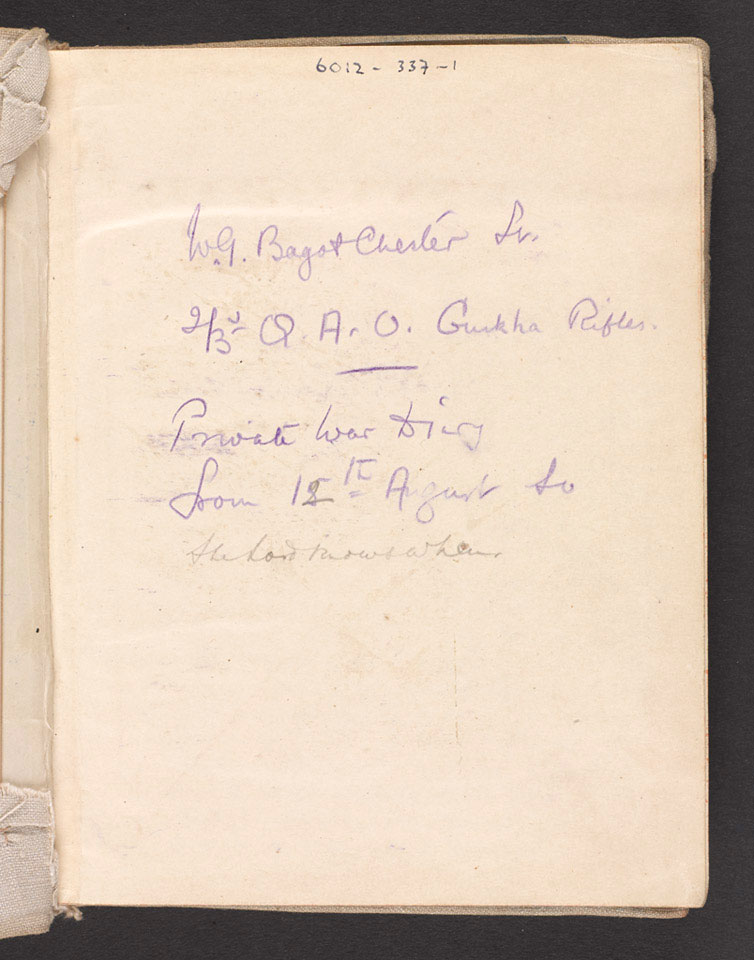 6012 - 337 - 1
W.G. Bagot Chester Lt.
2/3rd Q. A. O. Gurkha Rifles.
Private War Diary
from 12th August to
the Lord knows when.